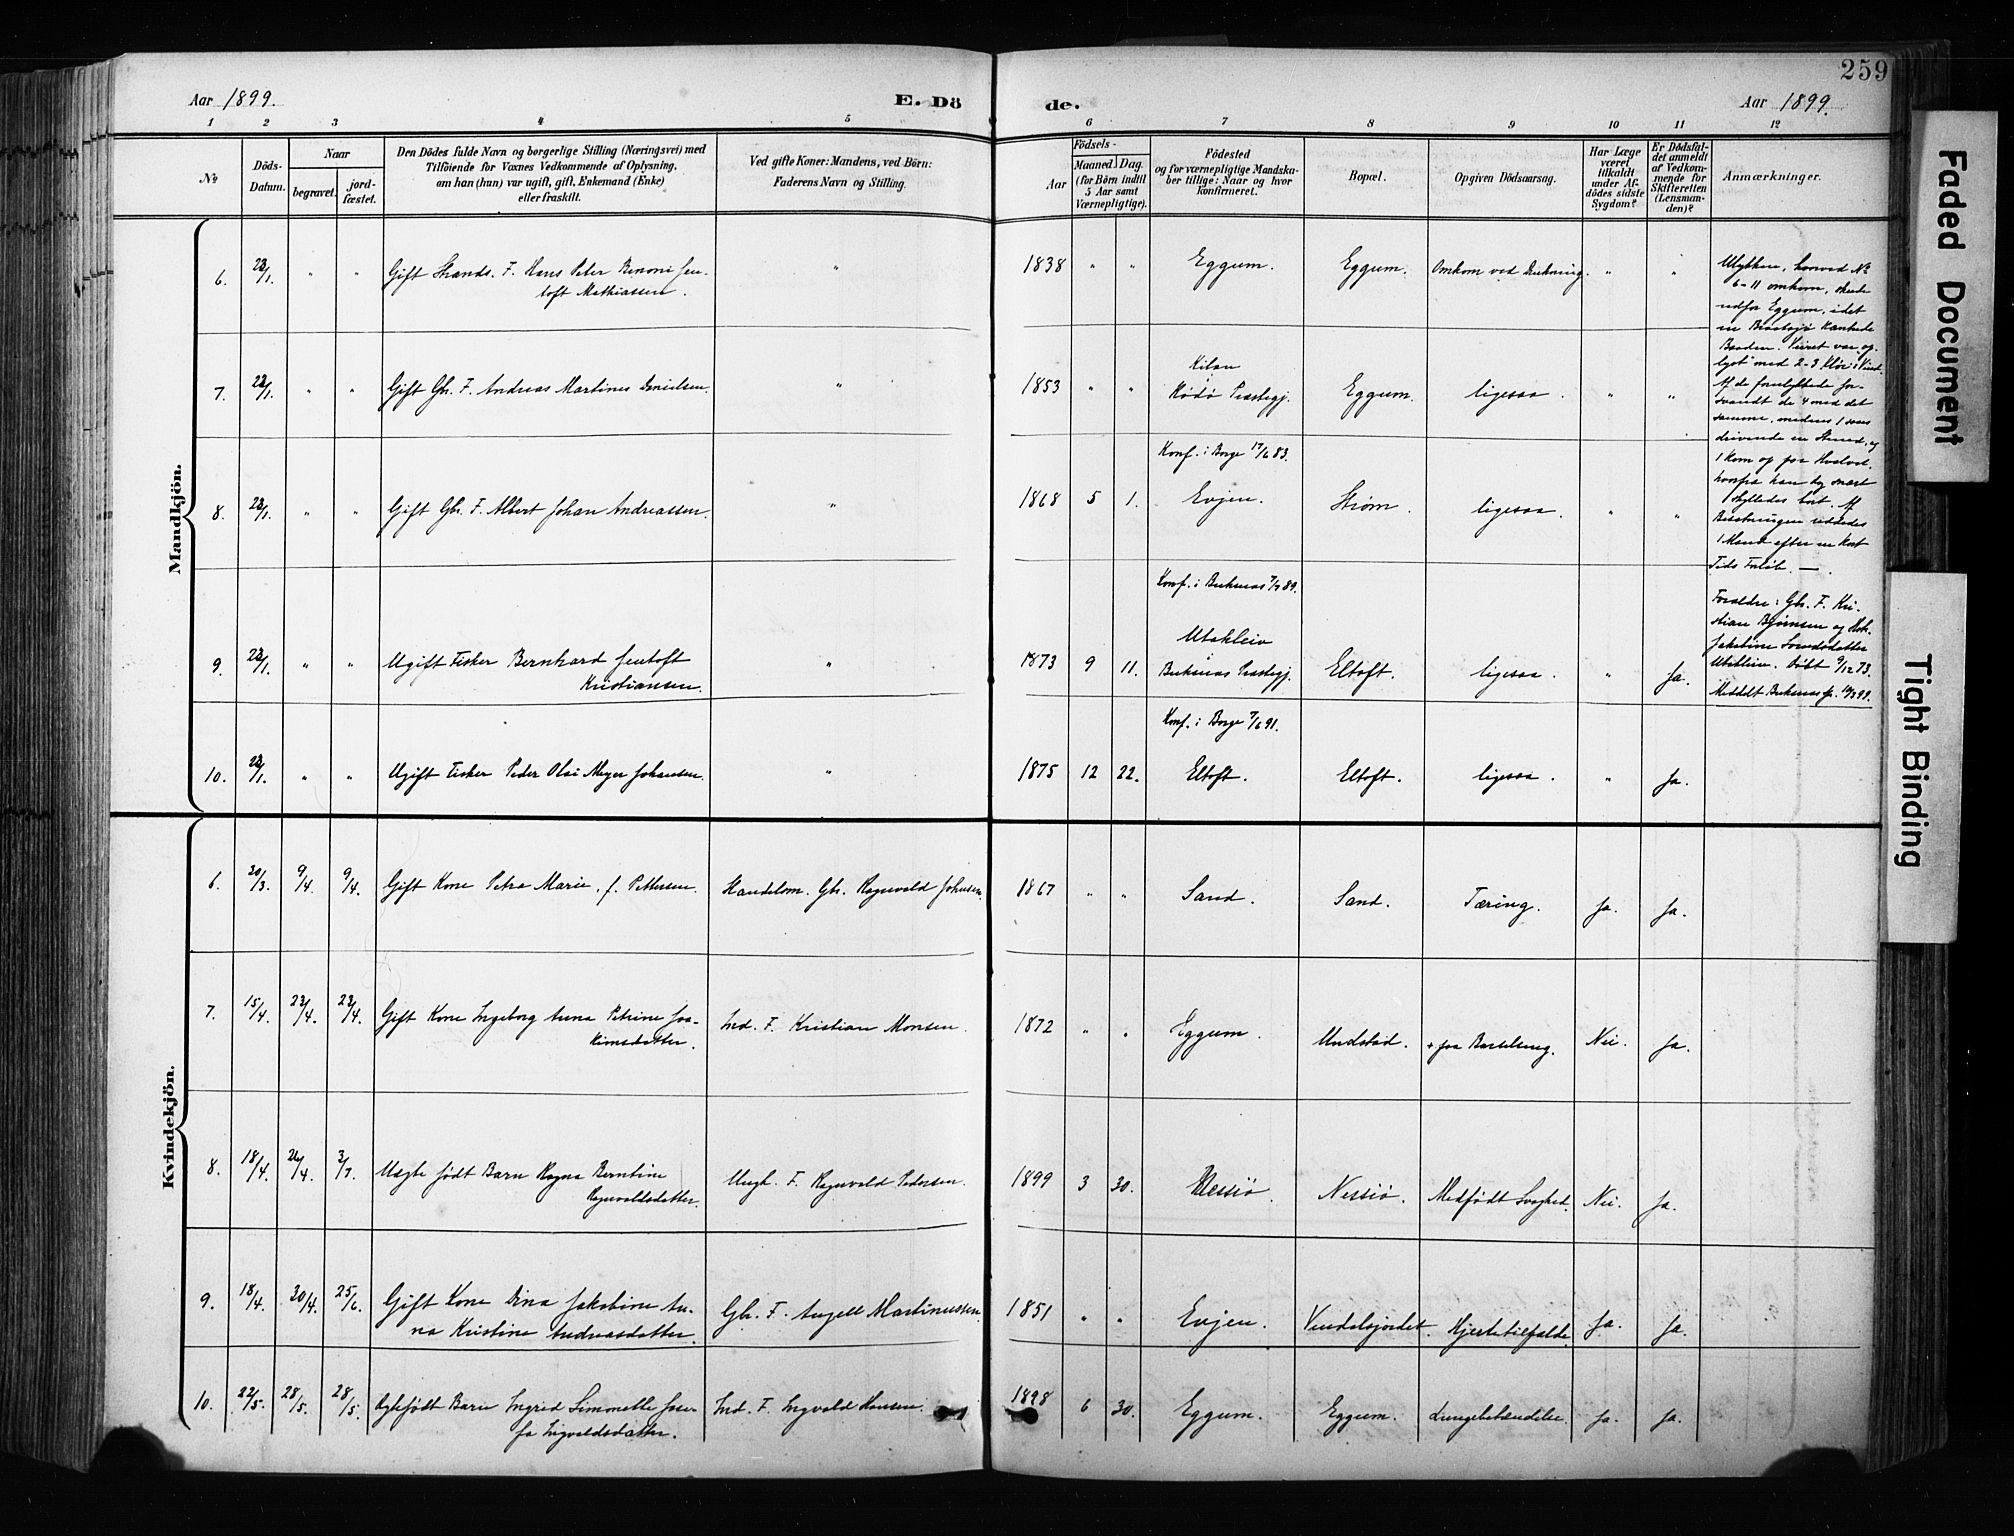 259
Aar 1899.
E. Dö
de.
Aar 1899.
1 2 3 4 5 6 7 8 9 10 11 12
No
Döds-Datum.
Naar
begravet.
jord-fæstet.
Den Dödes fulde Navn og borgerlige Stilling (Næringsvei) med
Tilföiende for Voxnes Vedkommende af Oplysning,
om han (hun) var ugift, gift, Enkemand (Enke)
eller fraskilt.
Ved gifte Koner: Mandens, ved Börn:
Faderens Navn og Stilling.
Födsels-
Aar
Maaned.
Dag.
(for Börn indtil
5 Aar samt
Værnepligtige).
Födested
og for værnepligtige Mandska-
ber tillige: Naar og hvor
konfirmeret.
Bopæl.
Opgiven Dödsaarsag.
Har Læge
været
tilkaldt
under Af-
dödes sidste
Sygdom?
Er Dödsfal-
det anmeldt
af Vedkom-
mende for
Skifteretten
(Lensman-
den)?
Anmærkninger.
Mandkjön.
6. 23/1. " " Gift Strands. F. Hans Peter Benoni Jen-
toft Mathiassen. " 1838 " " Eggum. Eggum. Omkom ved Drukning. " "
7. 23/1. " " Gift Gbr. F. Andreas Martinus Danielsen. " 1853 " " Kilan
Rödö Præstegj. Eggum. ligesaa. " "
8. 23/1. " " Gift Gbr. F. Albert Johan Andreassen. " 1868 5 1. Konf. i Borge 17/6 83.
Evjen. Strøm. ligesaa. " "
9. 23/1. " " Ugift Fisker Bernhard Jentoft
Kristiansen. " 1873 9 11. Konf. i Buksnes 7/7 89.
Utakleiv
Buksnes Præstegj. Eltoft. ligesaa. " Ja.
10. 23/1. " " Ugift Fisker Peder Olai Meyer Johansen. " 1875 12 22. Konf. i Borge 7/6 91.
Eltoft. Eltoft. ligesaa. " Ja.
Ulykken, hvorved No
6-11 omkom, skede
udfor Eggum, idet
en Braatsjø kantrede
Baaden. Veiret var op-
lyst med 2-3
Af de forulykkede for-
svandt de 4 med det
samme, medens 1 saaes
drivende en Stund, og
1 kom op paa Hvælvet,
hvorfra han dog snart
skylledes bort. Af
Besætningen reddedes
1 Mand efter en kort
Tids Forløb. —.
Forældre: Gbr. F. Kri-
stian Bjørnsen og Hst.
Jakobine
Utakleiv. Døbt 9/12 73.
Meddelt Buksnes
Kvindekjön.
6. 20/3. 9/4. 9/4. Gift Kone Petra Marie, f. Pettersen. Handelsm. Gbr. Ragnvald Johnsen. 1867 " " Sand. Sand. Tæring. Ja. Ja.
7. 15/4. 23/4. 23/4. Gift Kone Ingeborg Anna Petrine Joa-
kimsdatter. Ind. F. Kristian Monsen. 1872 " " Eggum. Undstad. + paa Barselseng. Nei. Ja.
8. 18/4. 26/4. 2/7. Uægte født Barn Ragna Berntine
Ragnvaldsdatter. Ungk. F. Ragnvald Pedersen. 1899 3 30. Nessiø. Nessiø. Medfødt Svaghed. Nei. Ja.
9. 18/4. 30/4. 25/6. Gift Kone Dina Jakobine An-
na Kristine Andreasdatter. Gbr. F. Angell Martinussen. 1851 " " Evjen. Vendalsjordet. Hjertetilfælde. Ja. Ja.
10. 22/5. 28/5. 28/5. Ægtefødt Barn Ingrid Simonette Jose-
fa Ingvaldsdatter. Ind. F. Ingvald Hansen. 1898 6 30. Eggum. Eggum. Lungebetændelse. Ja. Ja.
Faded Document
Tight Binding